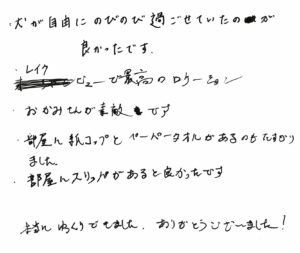 ・犬が自由にのびのび過ごせていたのが
良かったです.
・レイクビューで最高のロケーション
・おかみさんが素敵です
・部屋に紙コップとペーパータオルがあるの助かり
ました.
・部屋にスリッパがあると良かったです
ゆっくりできました. ありがとうございました!